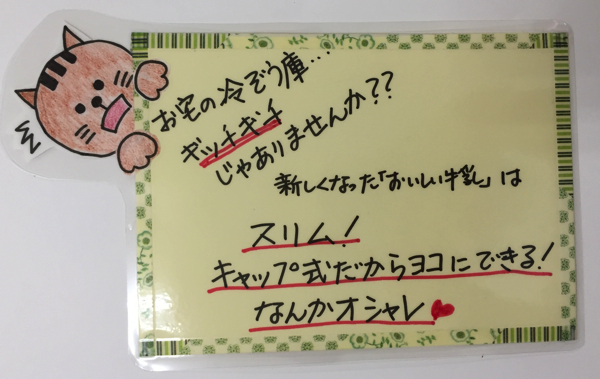 お宅の冷ぞう庫…
ギッチギチ
じゃありませんか??
新しくなった「おいしい牛乳」は
スリム!
キャップ式だからヨコにできる!
なんかオシャレ♥